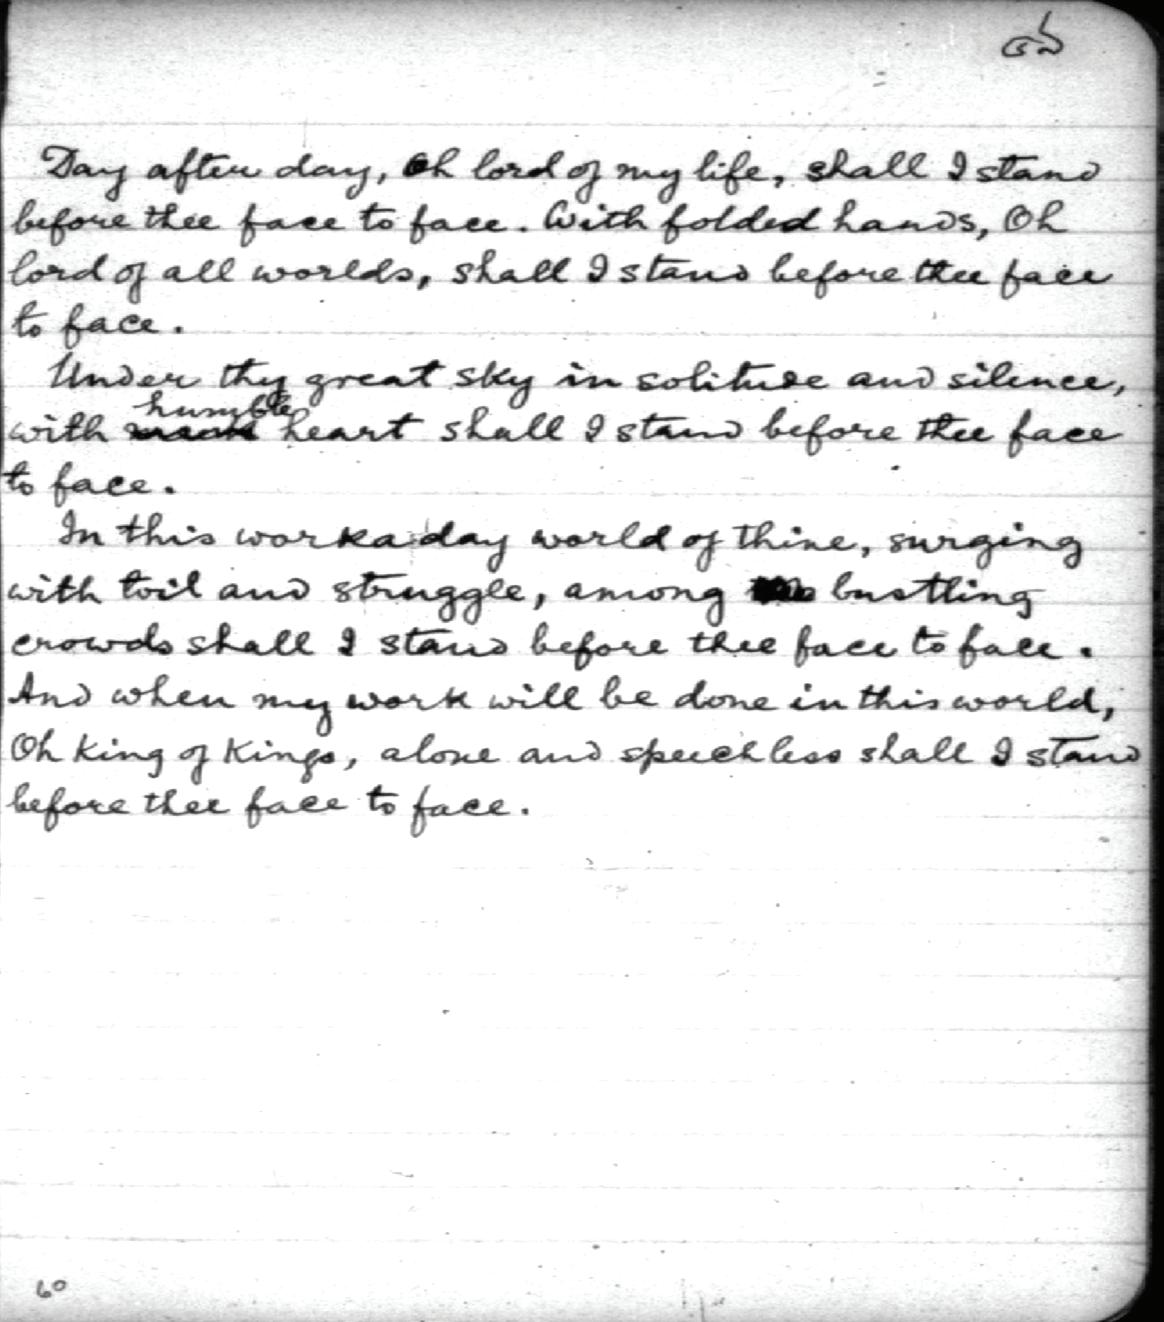 Day after day, Oh lord of my life, shall I stand
before thee face to face. With folded hands, Oh
lord of all worlds, shall I stand before thee face
to face.
Under thy great sky in solitude and silence,
humble
with heart shall I stand before thee face
to face.
In this workaday world of thine, surging
with toil and struggle, among bustling
crowds shall I stand before thee face to face.
And when my work will be done in this world,
Oh King of Kings, alone and speechless shall I stand
before thee face to face.
60